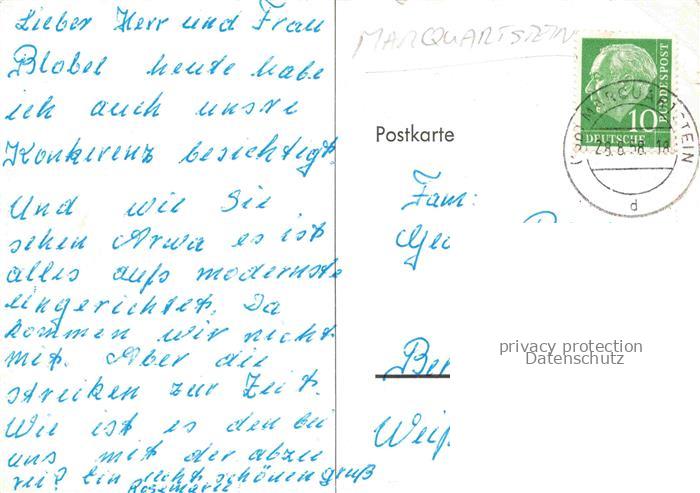 Lieber Herr und Frau
Blobel heute habe
ich auch unsre
Konkurenz besichtigt.
Und wie Sie
sehen Arwa es ist
alles aufs modernste
eingerichtet. Da
kommen wir nicht
mit. Aber die
streiken zur Zeit.
Wie ist es den bei
uns mit der abzu
rei? Ein recht schönen gruß
Rosemarie
MARQUARTSTEIN
Postkarte
10
DEUTSCHE
BUNDESPOST
MARQUARTSTEIN
28.8.58.-18
d
Fam:
Geo
Ber
Weiß
privacy protection
Datenschutz